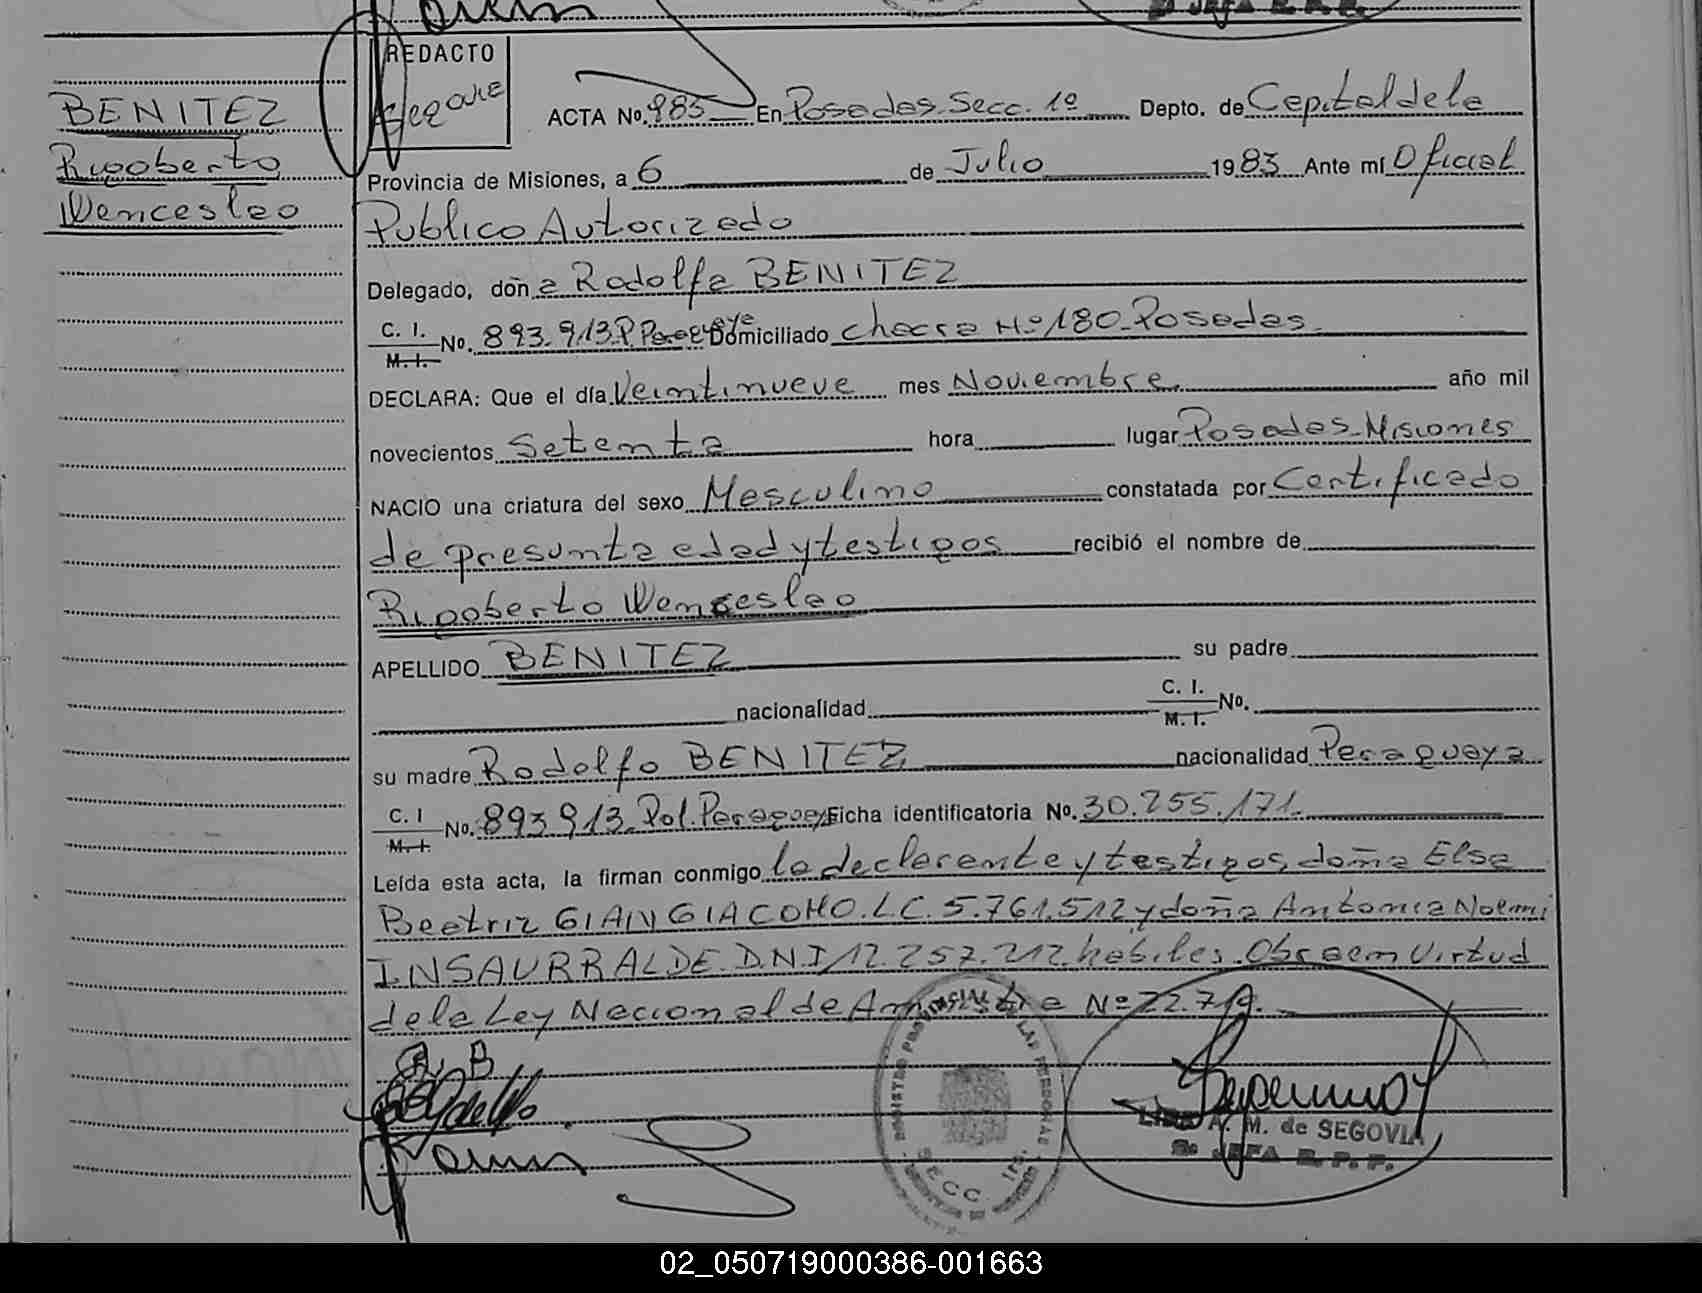 REDACTO
BENITEZ
Rigoberto
Wenceslao
ACTA No. 985 En Posadas Secc. 1º Depto. de Capital de la
Provincia de Misiones, a 6 de Julio 1983 Ante mí Oficial
Publico Autorizado
Delegado, doña Rodolfa BENITEZ
C. I.
M. I.
No. 893.913 P. Paraguaya Domiciliado chacra Nº 180 Posadas
DECLARA: Que el día Veintinueve mes Noviembre año mil
novecientos Setenta hora lugar Posadas Misiones
NACIO una criatura del sexo Masculino constatada por Certificado
de presunta edad y testigos recibió el nombre de
Rigoberto Wenceslao
APELLIDO BENITEZ su padre
nacionalidad C. I. No.
M. I.
su madre Rodolfo BENITEZ nacionalidad Paraguaya
C. I
M. I.
No. 893913 Pol. Paraguay Ficha identificatoria No. 30.255.171.
Leída esta acta, la firman conmigo la declarante y testigos, doña Elsa
Beatriz GIANGIACOMO. L.C. 5.761.512 y doña Antonia Noemi
INSAURRALDE. D.N.I 12.257.212 habiles. Obra en virtud
de la Ley Nacional de Amnistia Nº 22.719.
R. B
SECC. 1ra.
A. M. de SEGOVIA
JEFA R. P. P.
02_050719000386-001663